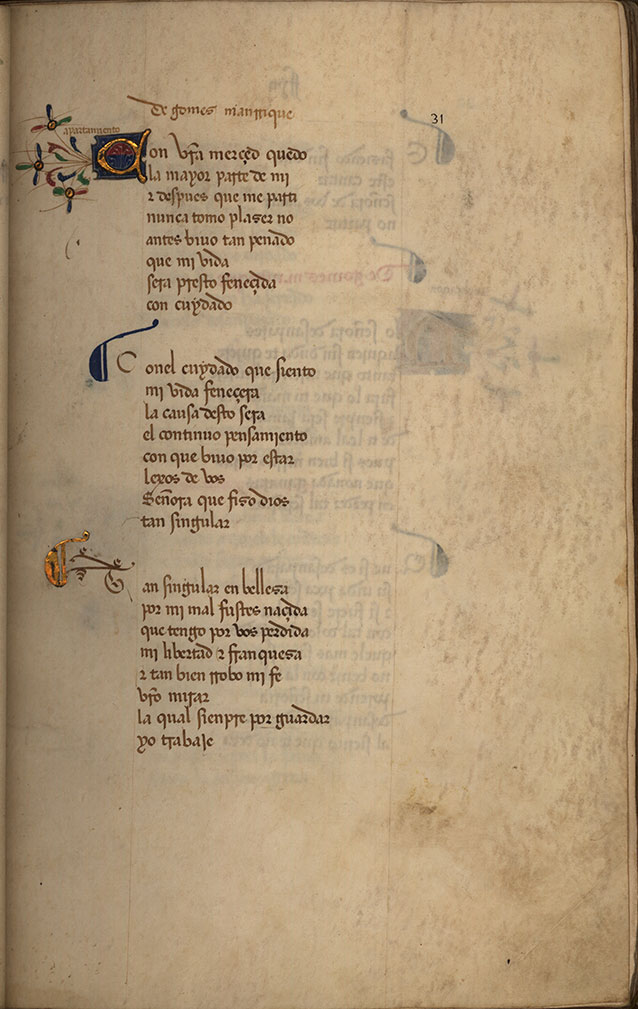 De gomes manrrique
31
apartamiento
Con vr̃a merçed quedo
la mayor parte de mi
τ despues que me parti
nunca tomo plaser no
antes biuo tan penado
que mi vida
sera presto feneçida
con cuydado
Conel cuydado que siento
mi vida feneçera
la causa desto sera
el continuo pensamiento
con que biuo por estar
lexos de vos
Señora que fiso dios
tan singular
Tan singular en bellesa
por mi mal fustes naçida
que tengo por vos perdida
mi libertad τ franquesa
τ tan bien rrobo mi fe
vr̃o mirar
la qual sienpre por guardar
yo trabaje